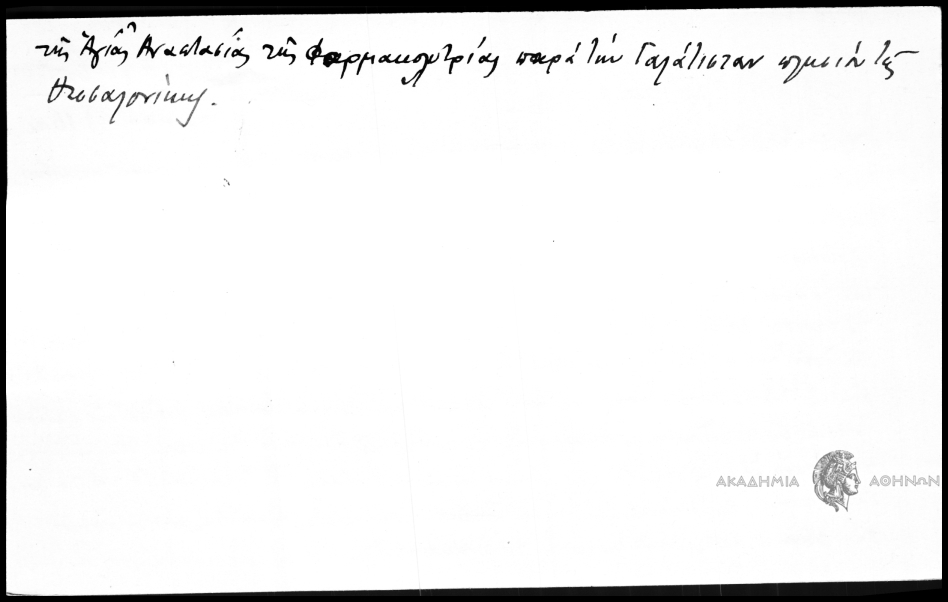 τῆς Ἁγίας Ἀναστασίας τῆς Φαρμακολυτρίας παρὰ τὴν Γαλάτισταν πλησίον τῆς
Θεσσαλονίκης.
ΑΚΑΔΗΜΙΑ ΑΘΗΝΩΝ